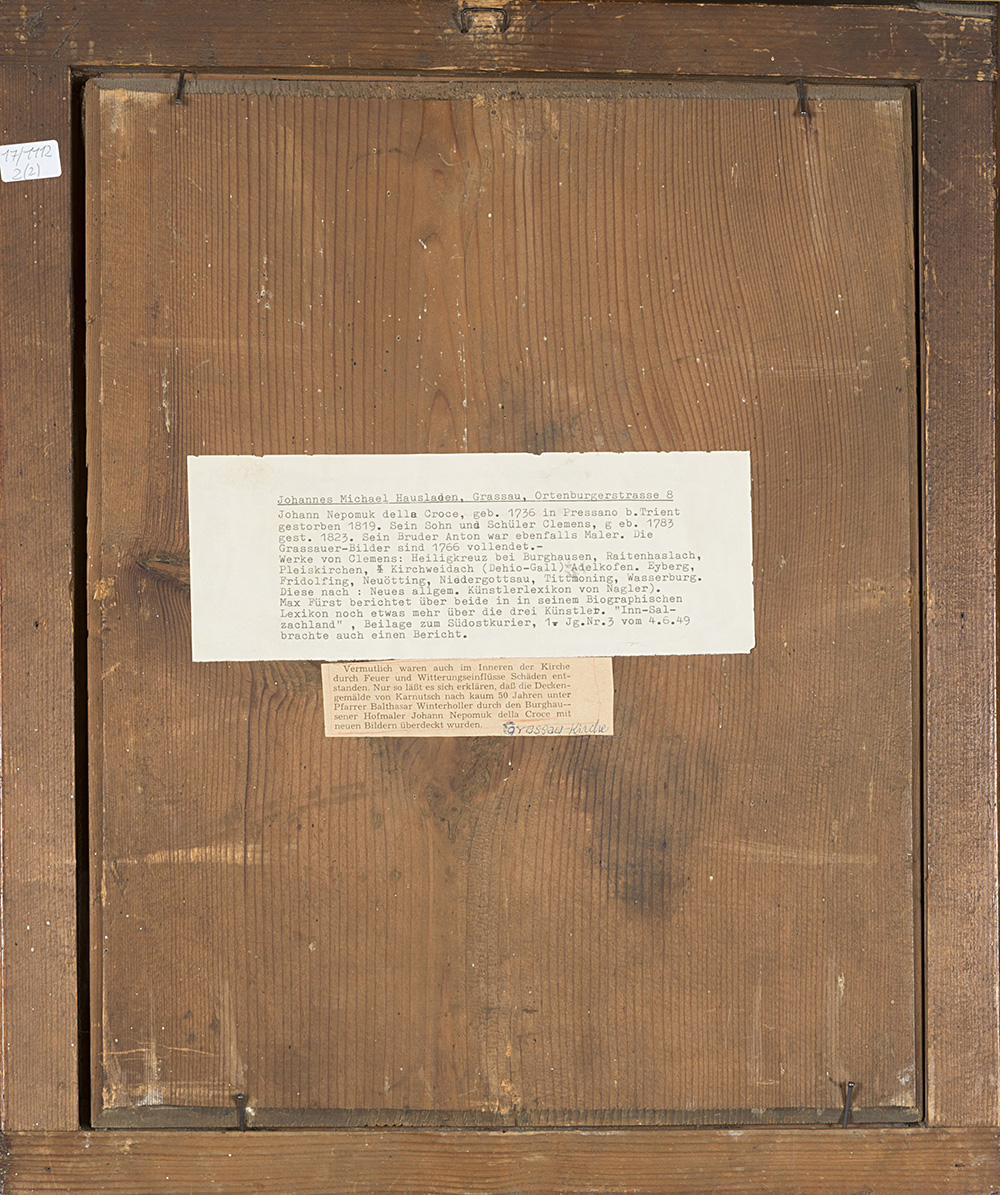 17/1112
2(2)
Johannes Michael Hausladen, Grassau, Ortenburgerstrasse 8
Johann Nepomuk della Croce, geb. 1736 in Pressano b.Trient
gestorben 1819. Sein Sohn und Schüler Clemens, g eb. 1783
gest. 1823. Sein Bruder Anton war ebenfalls Maler. Die
Grassauer-Bilder sind 1766 vollendet.-
Werke von Clemens: Heiligkreuz bei Burghausen, Raitenhaslach,
Pleiskirchen, Kirchweidach (Dehio-Gall) Adelkofen. Eyberg,
Fridolfing, Neuötting, Niedergottsau, Tittmoning, Wasserburg.
Diese nach : Neues allgem. Künstlerlexikon von Nagler).
Max Fürst berichtet über beide in in seinem Biographischen
Lexikon noch etwas mehr über die drei Künstler. "Inn-Sal-
zachland" , Beilage zum Südostkurier, 1. Jg.Nr.3 vom 4.6.49
brachte auch einen Bericht.
Vermutlich waren auch im Inneren der Kirche
durch Feuer und Witterungseinflüsse Schäden ent-
standen. Nur so läßt es sich erklären, daß die Decken-
gemälde von Karnutsch nach kaum 50 Jahren unter
Pfarrer Balthasar Winterholler durch den Burghau-
sener Hofmaler Johann Nepomuk della Croce mit
neuen Bildern überdeckt wurden.
Grassau-Kirche